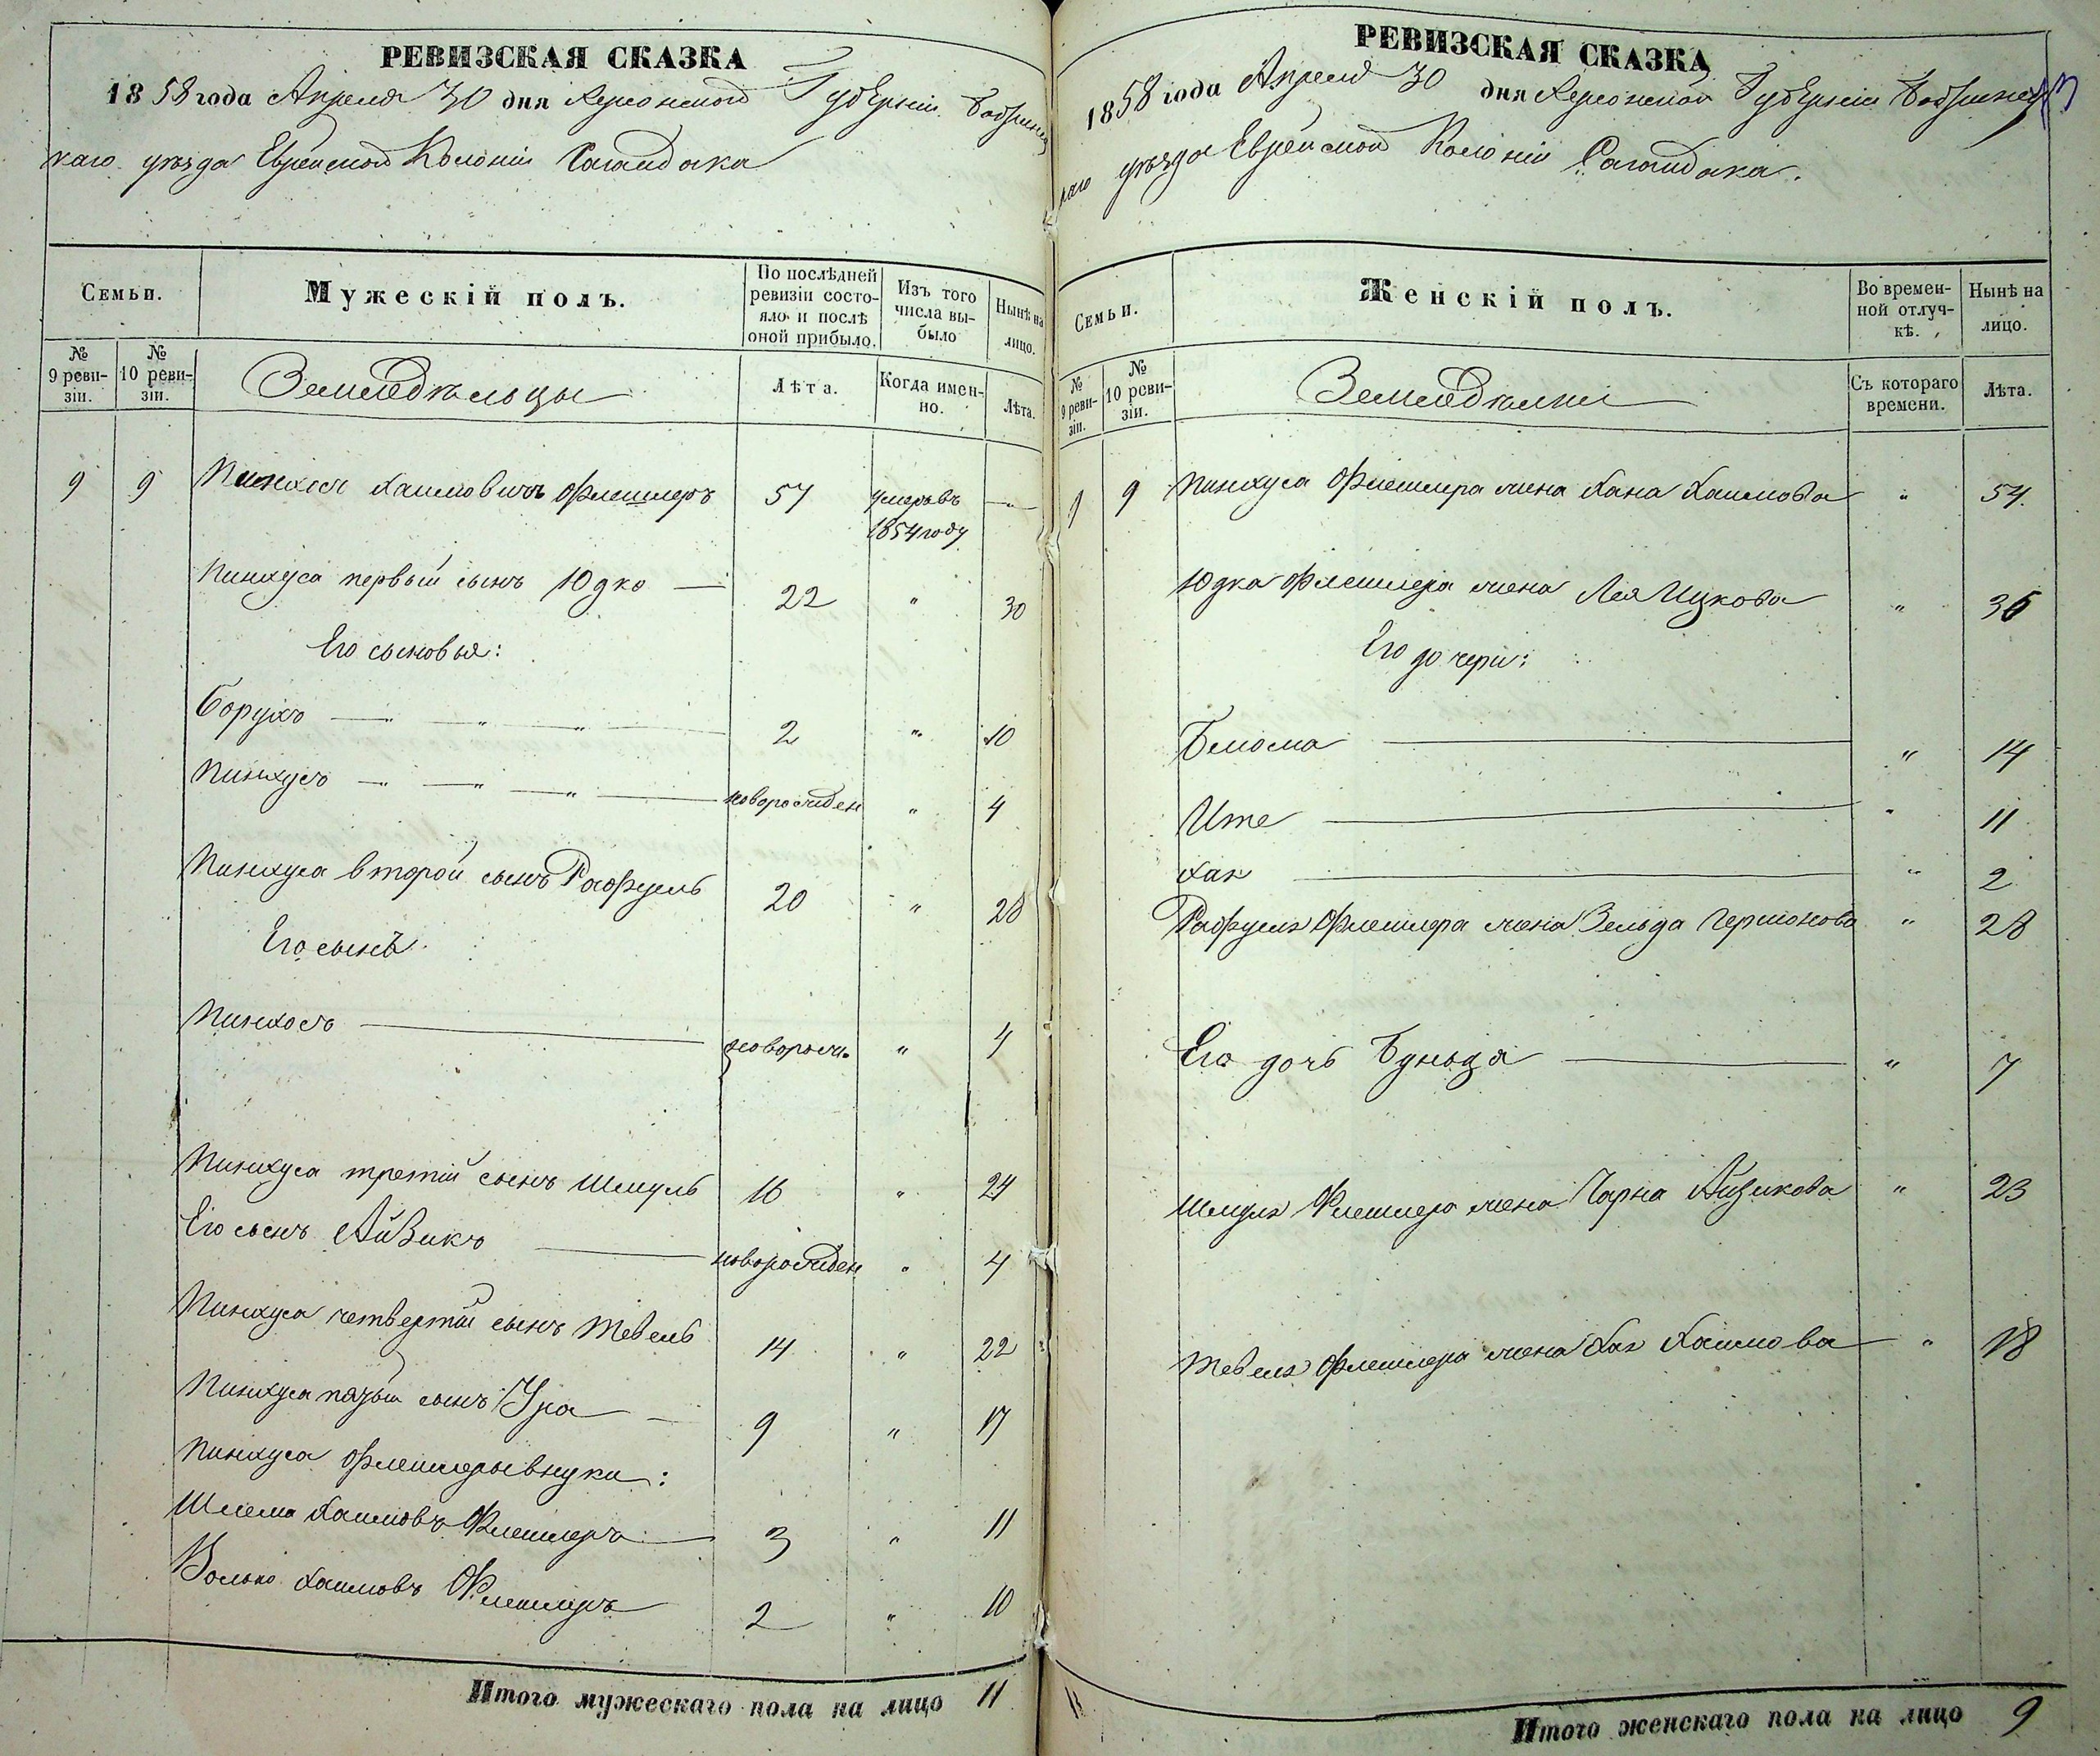 РЕВИЗСКАЯ СКАЗКА
1858 года Апреля 30 дня Херсонской Губерніи Бобринец
каго уѣзда Еврейской Колоніи Сагайдака
Семьи.
Мужескій полъ.
По послѣдней ревизіи состояло и послѣ оной прибыло.
Изъ того числа выбыло
Нынѣ на лицо.
№ 9 ревизіи.
№ 10 ревизіи.
Земледѣльцы
Лѣта.
Когда именно.
Лѣта.
9 9 Пинхосъ Хаимовичъ Флешлеръ 57 умеръ въ 1854 году —
Пинхуса первый сынъ Юдко — 22 " 30
Его сыновья:
Борухъ — " — " — " — 2 " 10
Пинхусъ — " — " — " — новорожден " 4
Пинхуса второй сынъ Рафуель 20 " 28
Его сынъ
Пинхосъ — новорож. " 4
Пинхуса третій сынъ Шмуль 16 " 24
Его сынъ Айзикъ — новорожден " 4
Пинхуса четвертый сынъ Тевель 14 " 22
Пинхуса пятый сынъ Ура — 9 " 17
Пинхуса Флешлеры внуки:
Шлема Хаимовъ Флешлеръ — 3 " 11
Волько Хаимовъ Флешлеръ 2 " 10
Итого мужескаго пола на лицо 11
РЕВИЗСКАЯ СКАЗКА
1858 года Апреля 30 дня Херсонской Губерніи Бобринец
каго уѣзда Еврейской Колоніи Сагайдака.
Семьи.
Женскій полъ.
Во временной отлучкѣ.
Нынѣ на лицо.
№ 9 ревизіи.
№ 10 ревизіи.
Земледѣлки
Съ котораго времени.
Лѣта.
9 9 Пинхуса Флешлера жена Хана Хаимова " 54.
Юдка Флешлера жена Лея Ицкова " 36
Его дочери:
Блюма — " 14
Ите — " 11
Хая — " 2
Рафуеля Флешлера жена Зельда Гершонова " 28
Его дочь Буньця — " 7
Шмуля Флешлера жена Чарна Айзикова " 23
Тевеля Флешлера жена Хая Хаимова — " 18
Итого женскаго пола на лицо 9